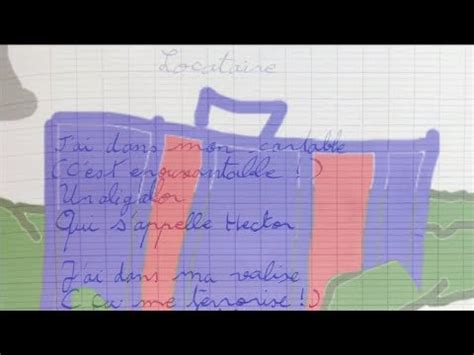 Locataire
J'ai dans mon cartable
(C'est épouvantable !)
Un aligator
Qui s'appelle Hector
J'ai dans ma valise
(Ça me terrorise !)